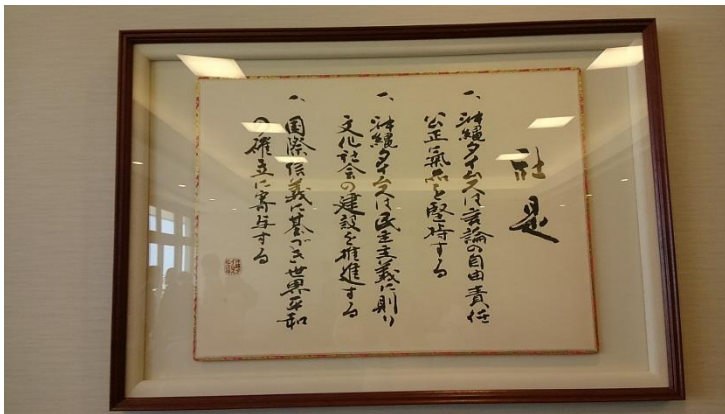 社是
一、沖縄タイムスは言論の自由責任
公正氣品を堅持する
一、沖縄タイムスは民主主義に則り
文化社会の建設を推進する
一、国際信義に基づき世界平和
の確立に寄与する